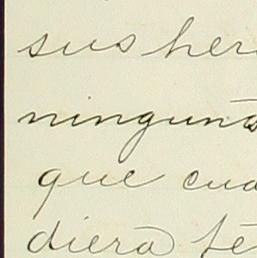 sus her
ninguna
que cua
diera te